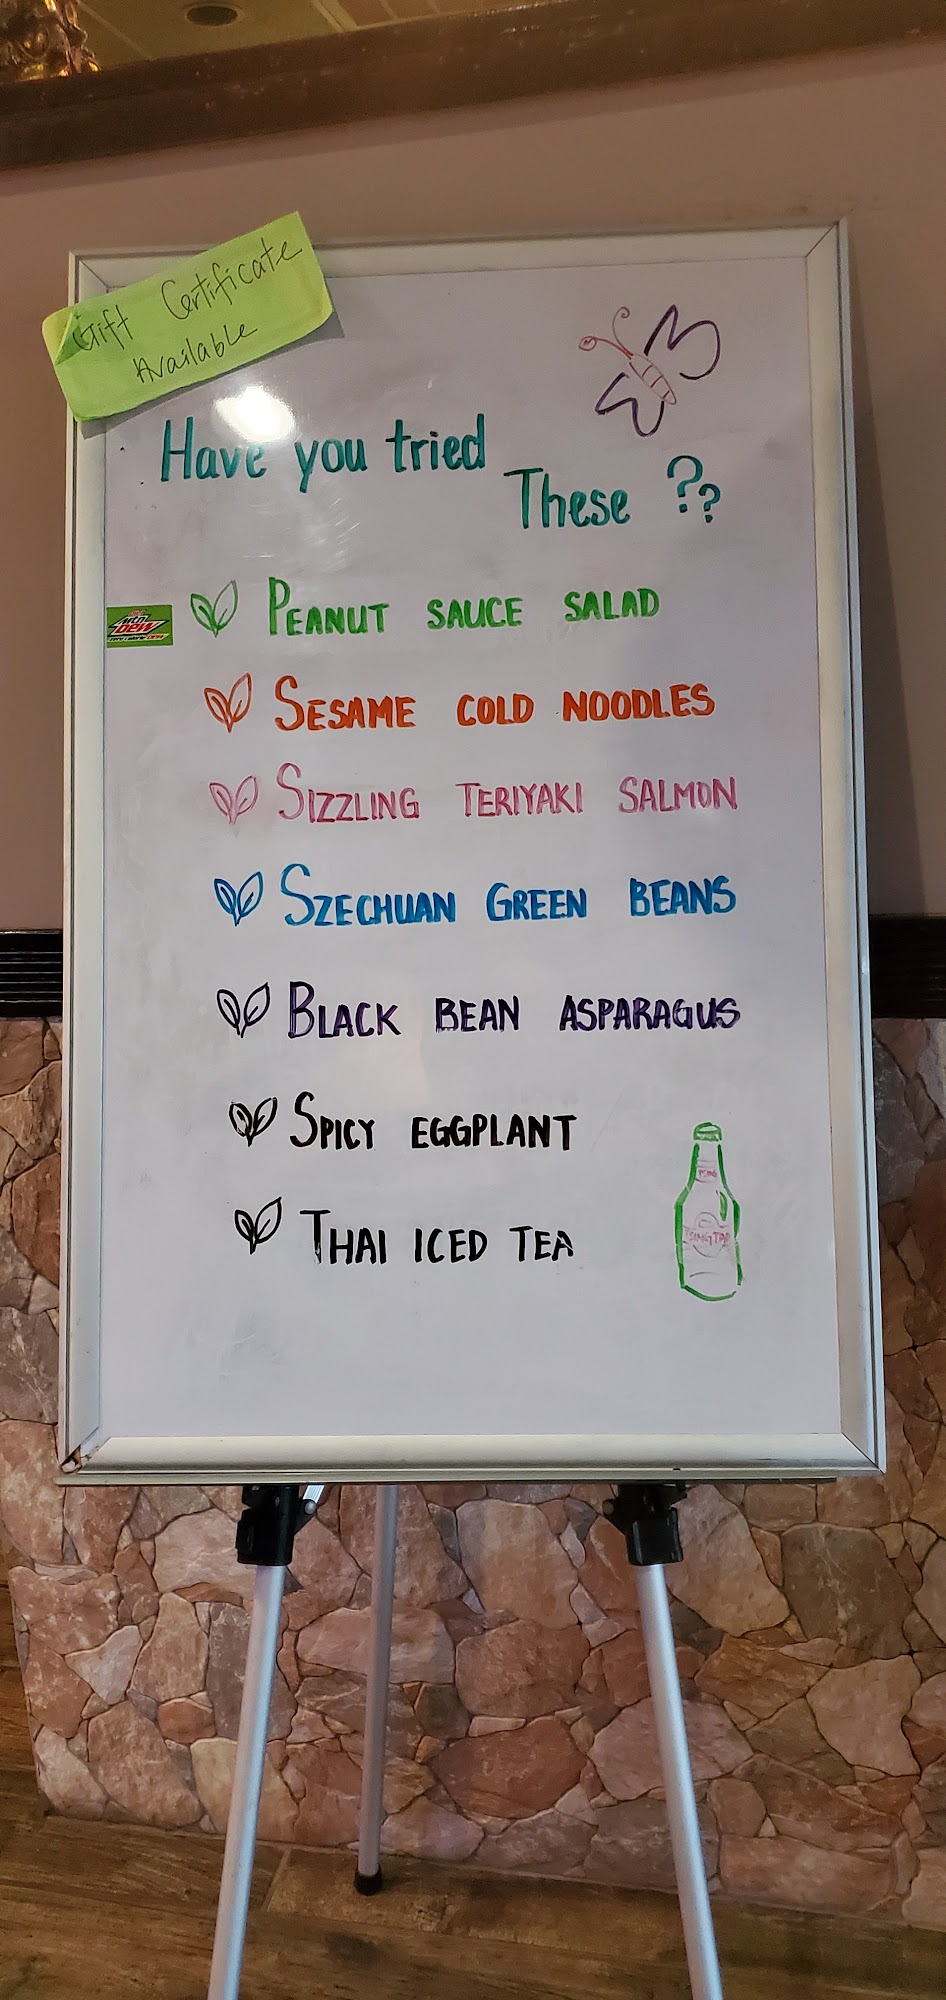 Gift Certificate
Available
Have you tried
These ??
Mtn
DEW
PEANUT SAUCE SALAD
SESAME COLD NOODLES
SIZZLING TERIYAKI SALMON
SZECHUAN GREEN BEANS
BLACK BEAN ASPARAGUS
SPICY EGGPLANT
THAI ICED TEA
TSINGTAO